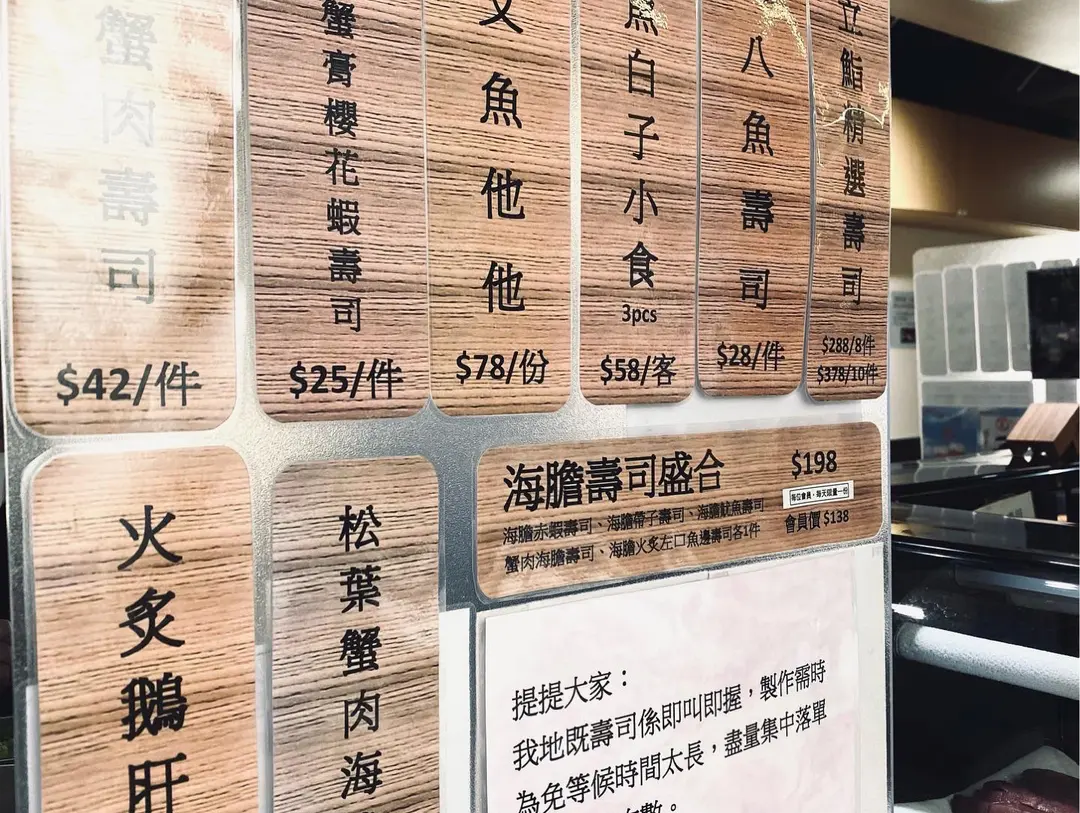 蟹肉壽司
$42/件
蟹膏櫻花蝦壽司
$25/件
魚他他
$78/份
白子小食
3pcs
$58/客
八魚壽司
$28/件
立鮨精選壽司
$288/8件
$378/10件
火炙鵝肝
松葉蟹肉海
海膽壽司盛合
$198
每位會員，每天限量一份
會員價 $138
海膽赤蝦壽司、海膽帶子壽司、海膽魷魚壽司
蟹肉海膽壽司、海膽火炙左口魚邊壽司各1件
提提大家：
我地既壽司係即叫即握，製作需時
為免等候時間太長，盡量集中落單
數。